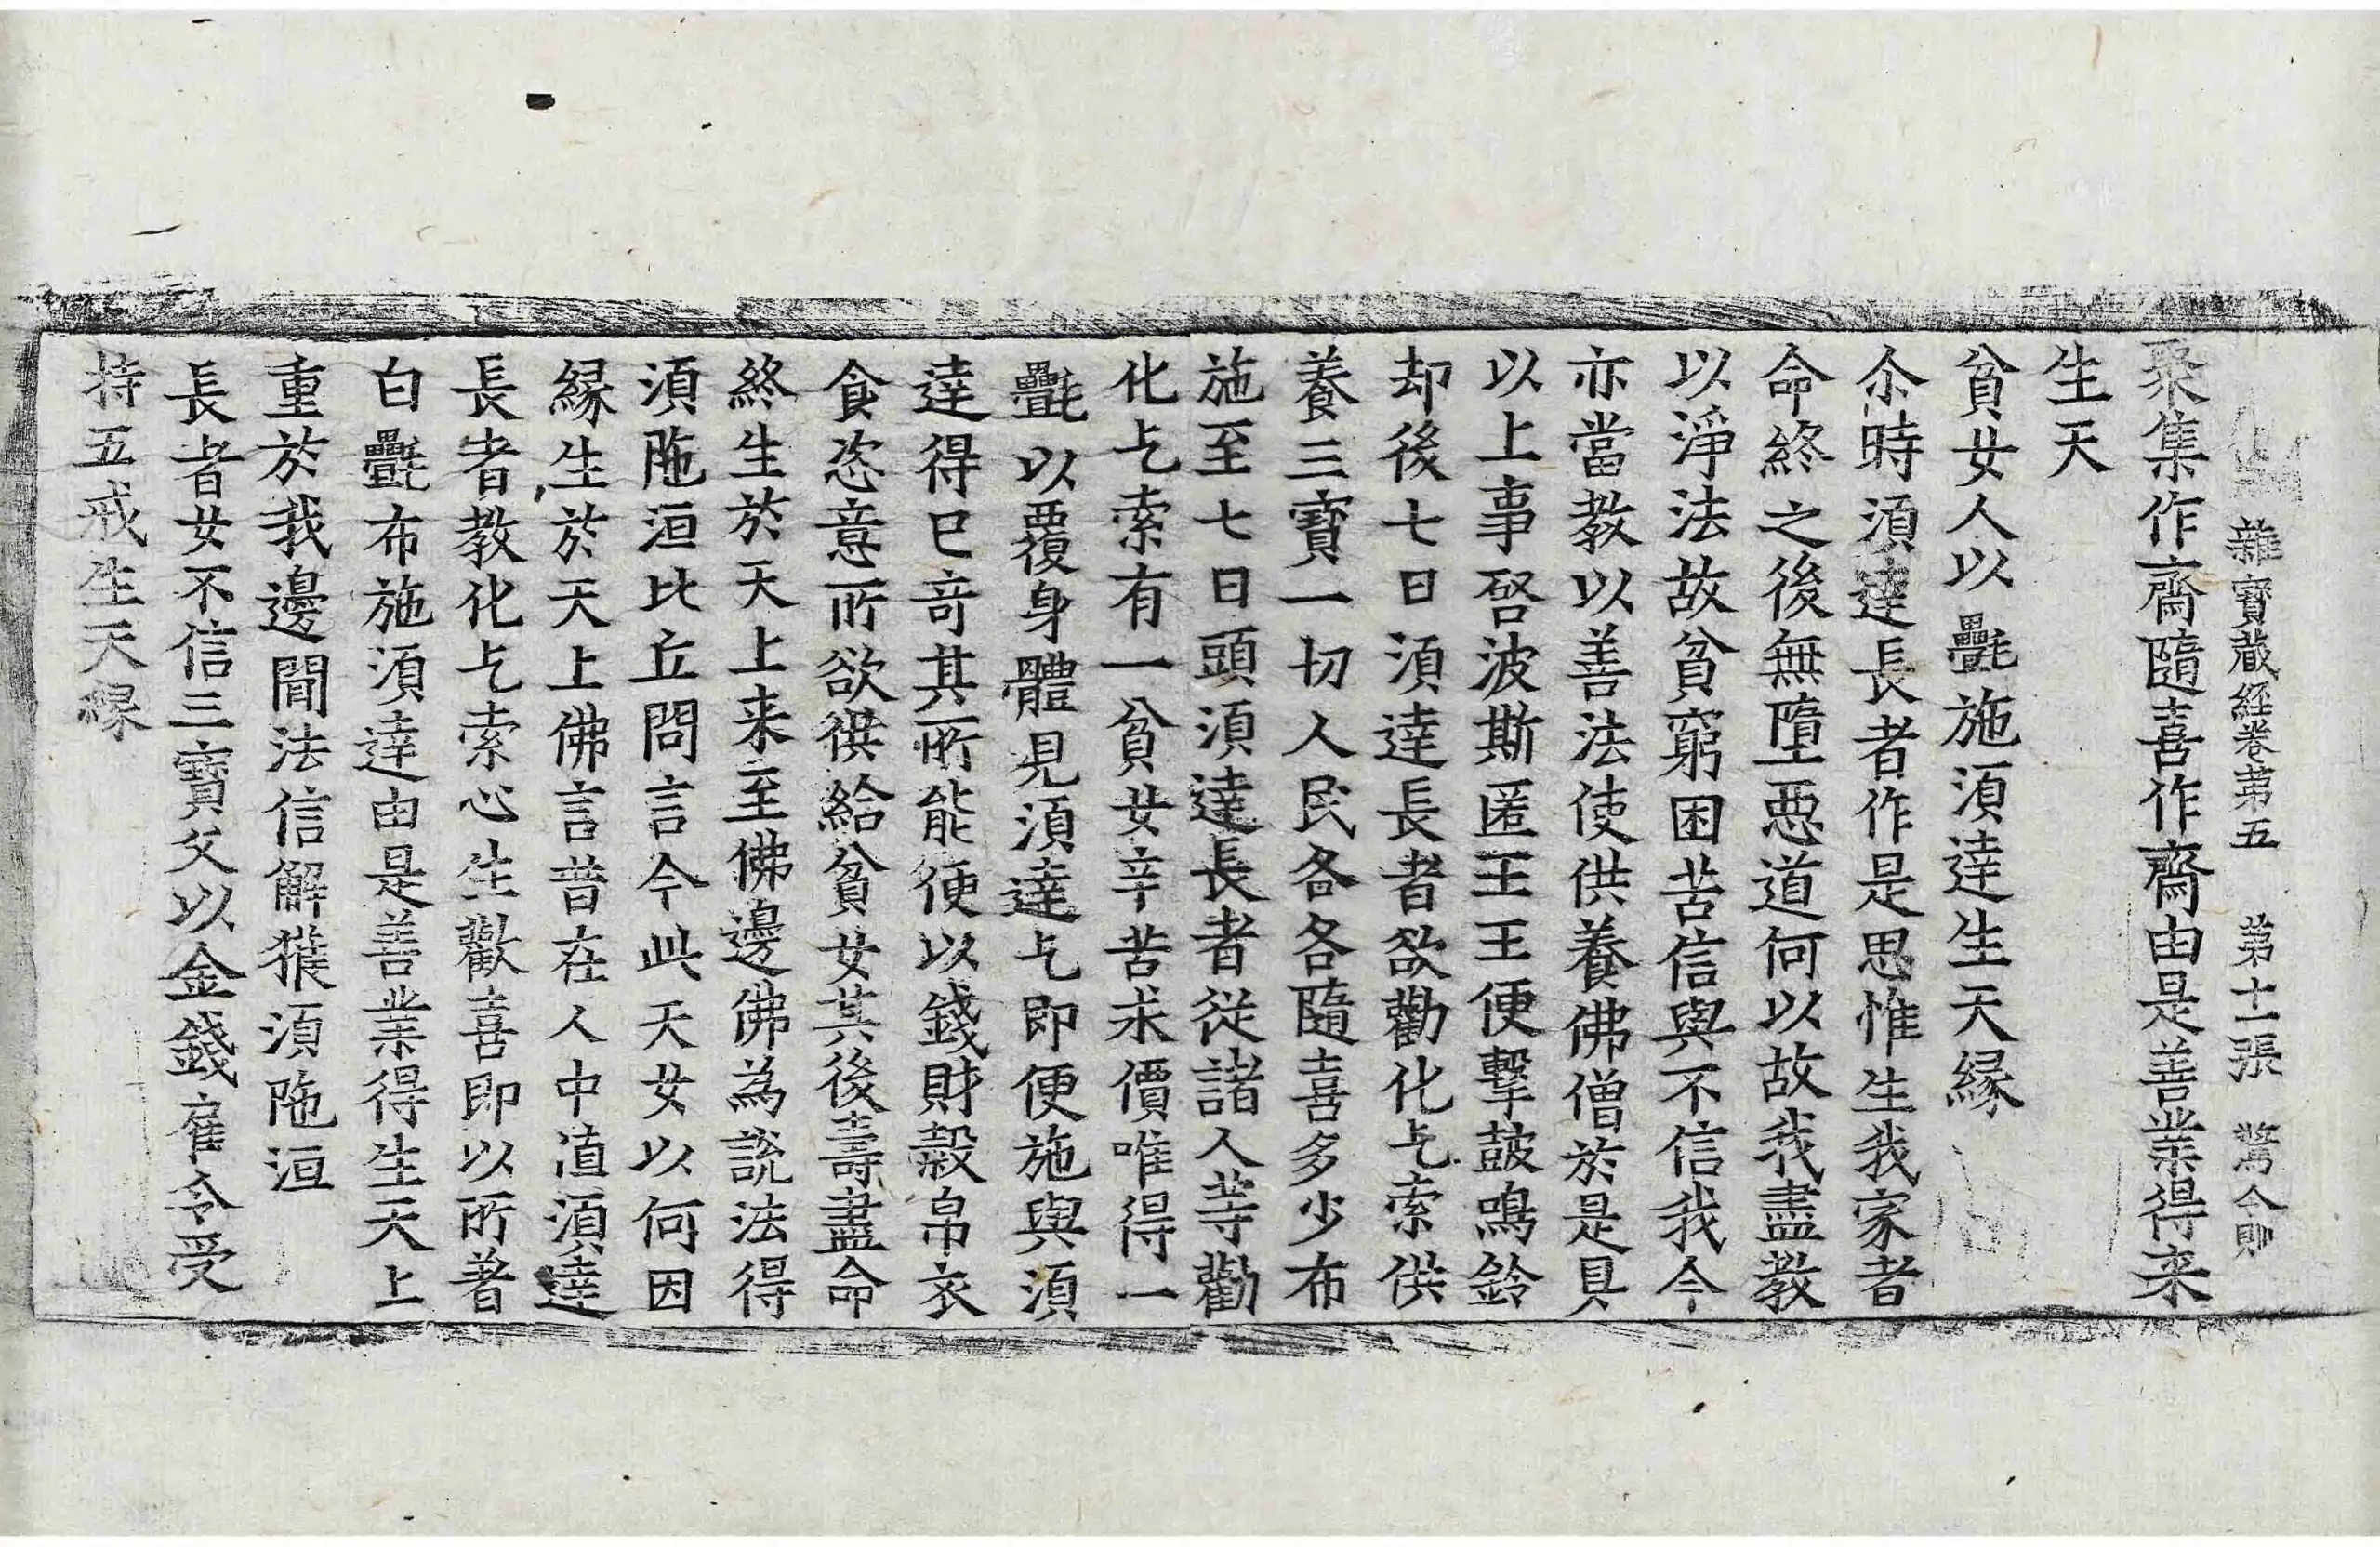 雜寶蔵経卷苐五 苐十一張 驚 仅則
聚集作齋隨喜作齋由是善業得来
生天
貧女人以㲲施湏達生天縁
尒時湏達長者作是思惟生我家者
命終之後無墮惡道何以故我盡教
以淨法故貧窮困苦信與不信我今
亦當教以善法使供養佛僧於是具
以上事啓波斯匿王王便擊鼓鳴鈴
却後七日湏達長者欲勸化乞索供
養三寶一切人民各各隨喜多少布
施至七日頭湏達長者從諸人等勸
化乞索有一貧女辛苦求價唯得一
㲲以覆身體見湏達乞即便施與湏
達得已竒其所能便以錢財穀帛衣
食恣意所欲供給貧女其後壽盡命
終生於天上来至佛邊佛為說法得
湏陁洹比丘問言今此天女以何因
縁生於天上佛言昔在人中值湏達
長者教化乞索心生歡喜即以所著
白㲲布施湏達由是善業得生天上
重於我邊聞法信解獲湏陁洹
長者女不信三寶父以金錢雇令受
持五戒生天縁